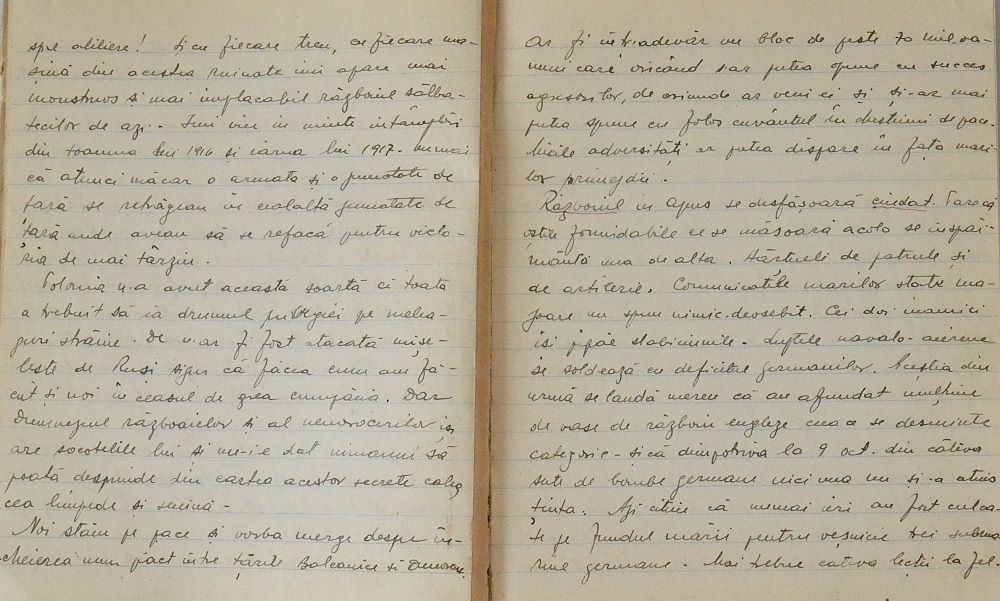 spre atiliere! Și cu fiecare tren, cu fiecare ma-
șină din acestea ruinate imi apare mai
monstruos și mai implacabil războiul sălba-
tecilor de azi. Imi vin in minte intâmplări
din toamna lui 1916 si iarna lui 1917. Numai
că atunci măcar o armata și o jumatate de
țară se retrăgeau in cealaltă jumatate de
țară unde aveau să se refacă pentru victo-
ria de mai târziu.
Polonia n-a avut această soartă ci toată
a trebuit să ia drumul pribegiei pe melea-
guri străine. De n-ar fi fost atacată mișe-
lește de Ruși sigur că făcea cum am fă-
cut și noi in ceasul de grea cumpănă. Dar
Dumnezeul războaielor și al nenorocirilor iși
are socotelile lui si nu-i-e dat nimanui să
poată desprinde din cartea acestor secrete calea
cea limpede si senină.
Noi stăm pe pace și vorba merge despre in-
cheierea unui pact intre țările Balcanice si Dunărene.
Ar fi intr-adevăr un bloc de peste 70 mil. oa-
meni care oricând s-ar putea opune cu succes
agresorilor, de oriunde ar veni ei și și-ar mai
putea spune cu folos cuvântul in chestiuni de pace.
Micile adversități ar putea dispare in fața mari-
lor primejdii.
Războiul in Apus se desfășoară ciudat. Parecă
oștile formidabile ce se măsoară acolo se inspăi-
mântă una de alta. Hărțueli de patrule și
de artilerie. Comunicatele marilor state ma-
joare nu spun nimic deosebit. Cei doi inamici
iși pipăe slabiciunile. Luptele navalo-aeriene
se soldează cu deficitul germanilor. Aceștia din
urmă se laudă mereu că au afundat mulțime
de vase de războiu engleze ceeace se desminte
categoric - și că dimpotriva la 9 oct. din câtiva
sute de bombe germane nici una nu și-a atins
ținta. Azi știm că numai ieri au fost culca-
te pe fundul mării pentru veșnicie trei subma-
rine germane. Mai trebue câteva lecții la fel.